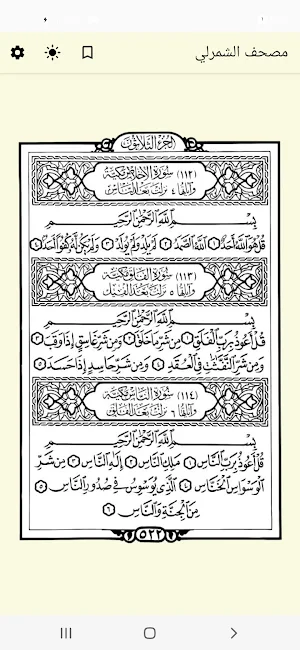 مصحف الشمرلي
الجزء الثلاثون
(١١٢) سورة الإخلاص مكية
وآياتها ٤ نزلت بعد الناس
بسم الله الرحمن الرحيم
قل هو الله أحد ١ الله الصمد ٢ لم يلد ولم يولد ٣ ولم يكن له كفوا أحد ٤
(١١٣) سورة الفلق مكية
وآياتها ٥ نزلت بعد الفيل
بسم الله الرحمن الرحيم
قل أعوذ برب الفلق ١ من شر ما خلق ٢ ومن شر غاسق إذا وقب ٣
ومن شر النفثت في العقد ٤ ومن شر حاسد إذا حسد ٥
(١١٤) سورة الناس مكية
وآياتها ٦ نزلت بعد الفلق
بسم الله الرحمن الرحيم
قل أعوذ برب الناس ١ ملك الناس ٢ إله الناس ٣ من شر
الوسواس الخناس ٤ الذي يوسوس في صدور الناس ٥
من الجنة والناس ٦
٥٢٢